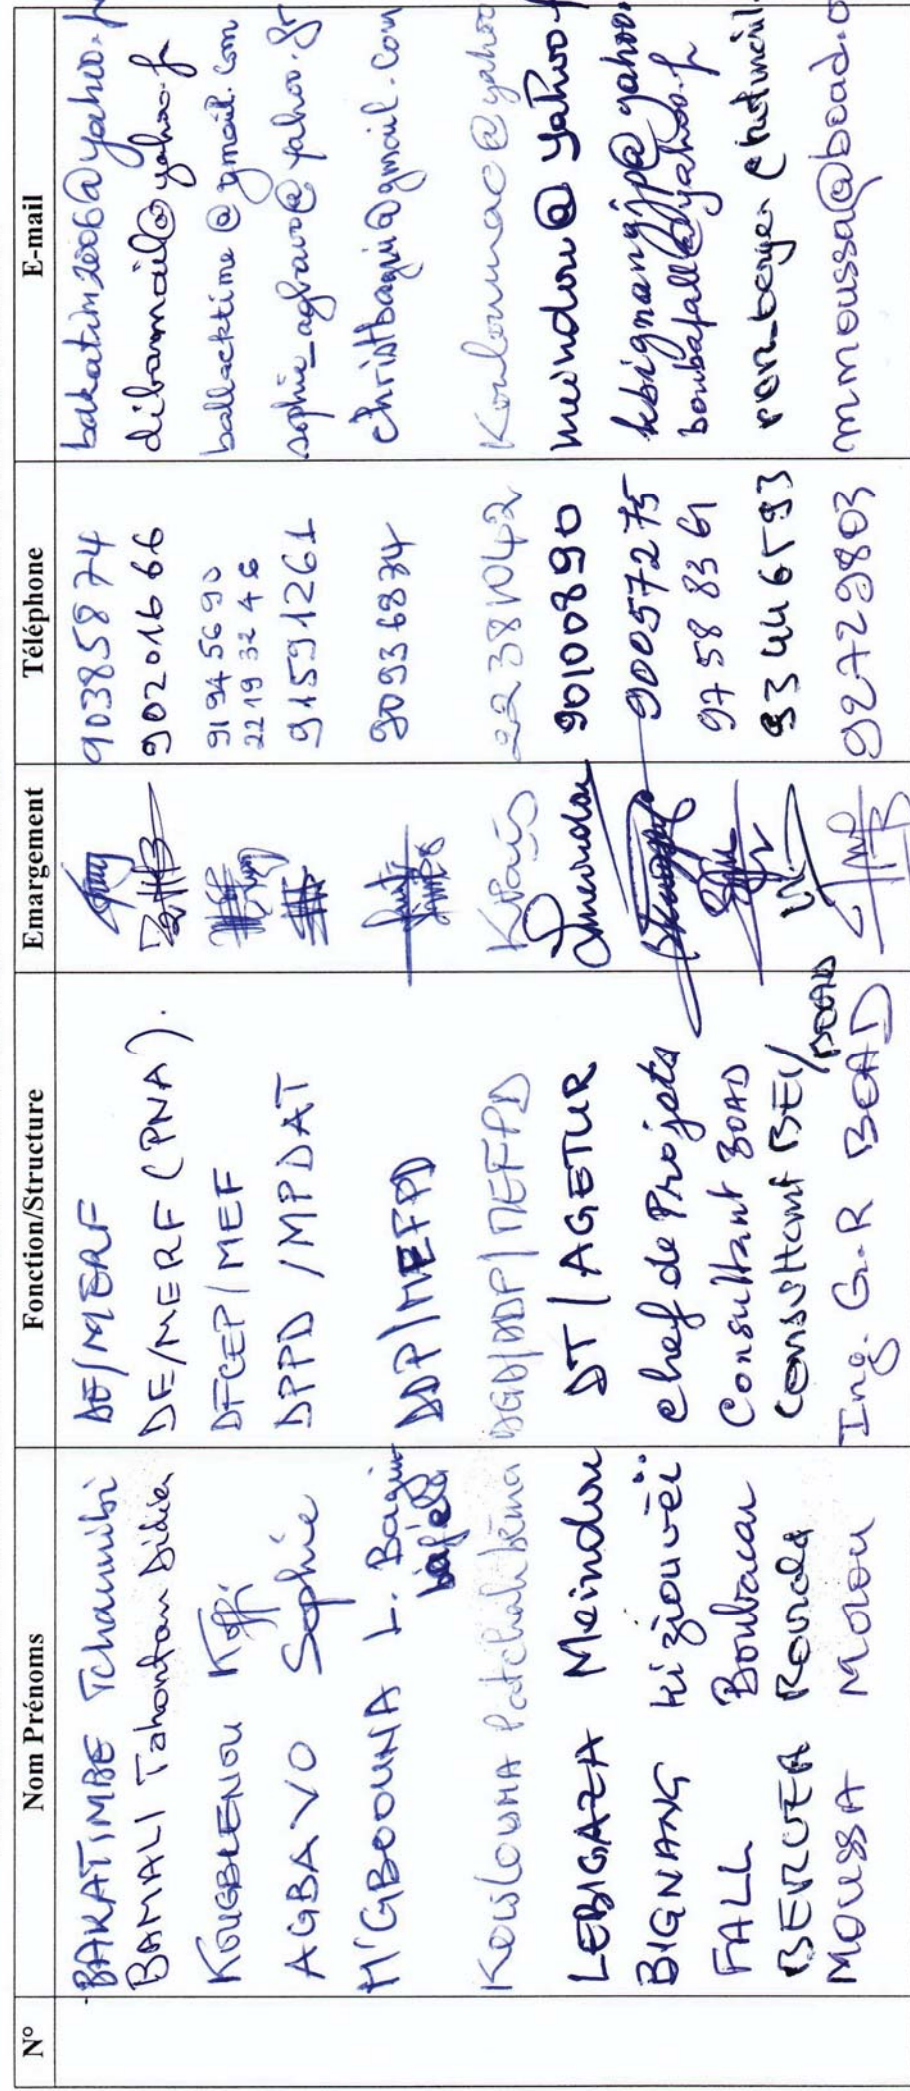 N° Nom Prénoms Fonction/Structure Emargement Téléphone E-mail
BAKATIMBE Tchannibi DE/MERF 90385874 bakatim2006@yahoo.fr
BAMALI Tahontan Didier DE/MERF (PNA). 90201666 dibamali@yahoo.fr
KOUGBLENOU Koffi DFCEP/MEF 91945690 ballacktime@gmail.com
22193246
AGBAVO Sophie DPPD/MPDAT 91591261 sophie_agbavo@yahoo.fr
M'GBOOUNA L. Bagui DDP/MEFPD 90936874 christbagui@gmail.com
KOULOUMA Patchalibéma DGD/DDP/MEFPD 22381042 Kouloumac@yahoo
LEBIGAZA Meindou DT/AGETUR 90100890 meindou@yahoo.f
BIGNANG Kiziouvéï Chef de Projets 90057275 kbignangjp@yahoo.
FALL Boubacar Consultant BOAD 97588361 boubafall@yahoo.fr
BERGER Renda Consultant BEI/BOAD 93446593
MOUSSA Morou Ing. G.R BOAD 92729803 mmoussa@boad.o